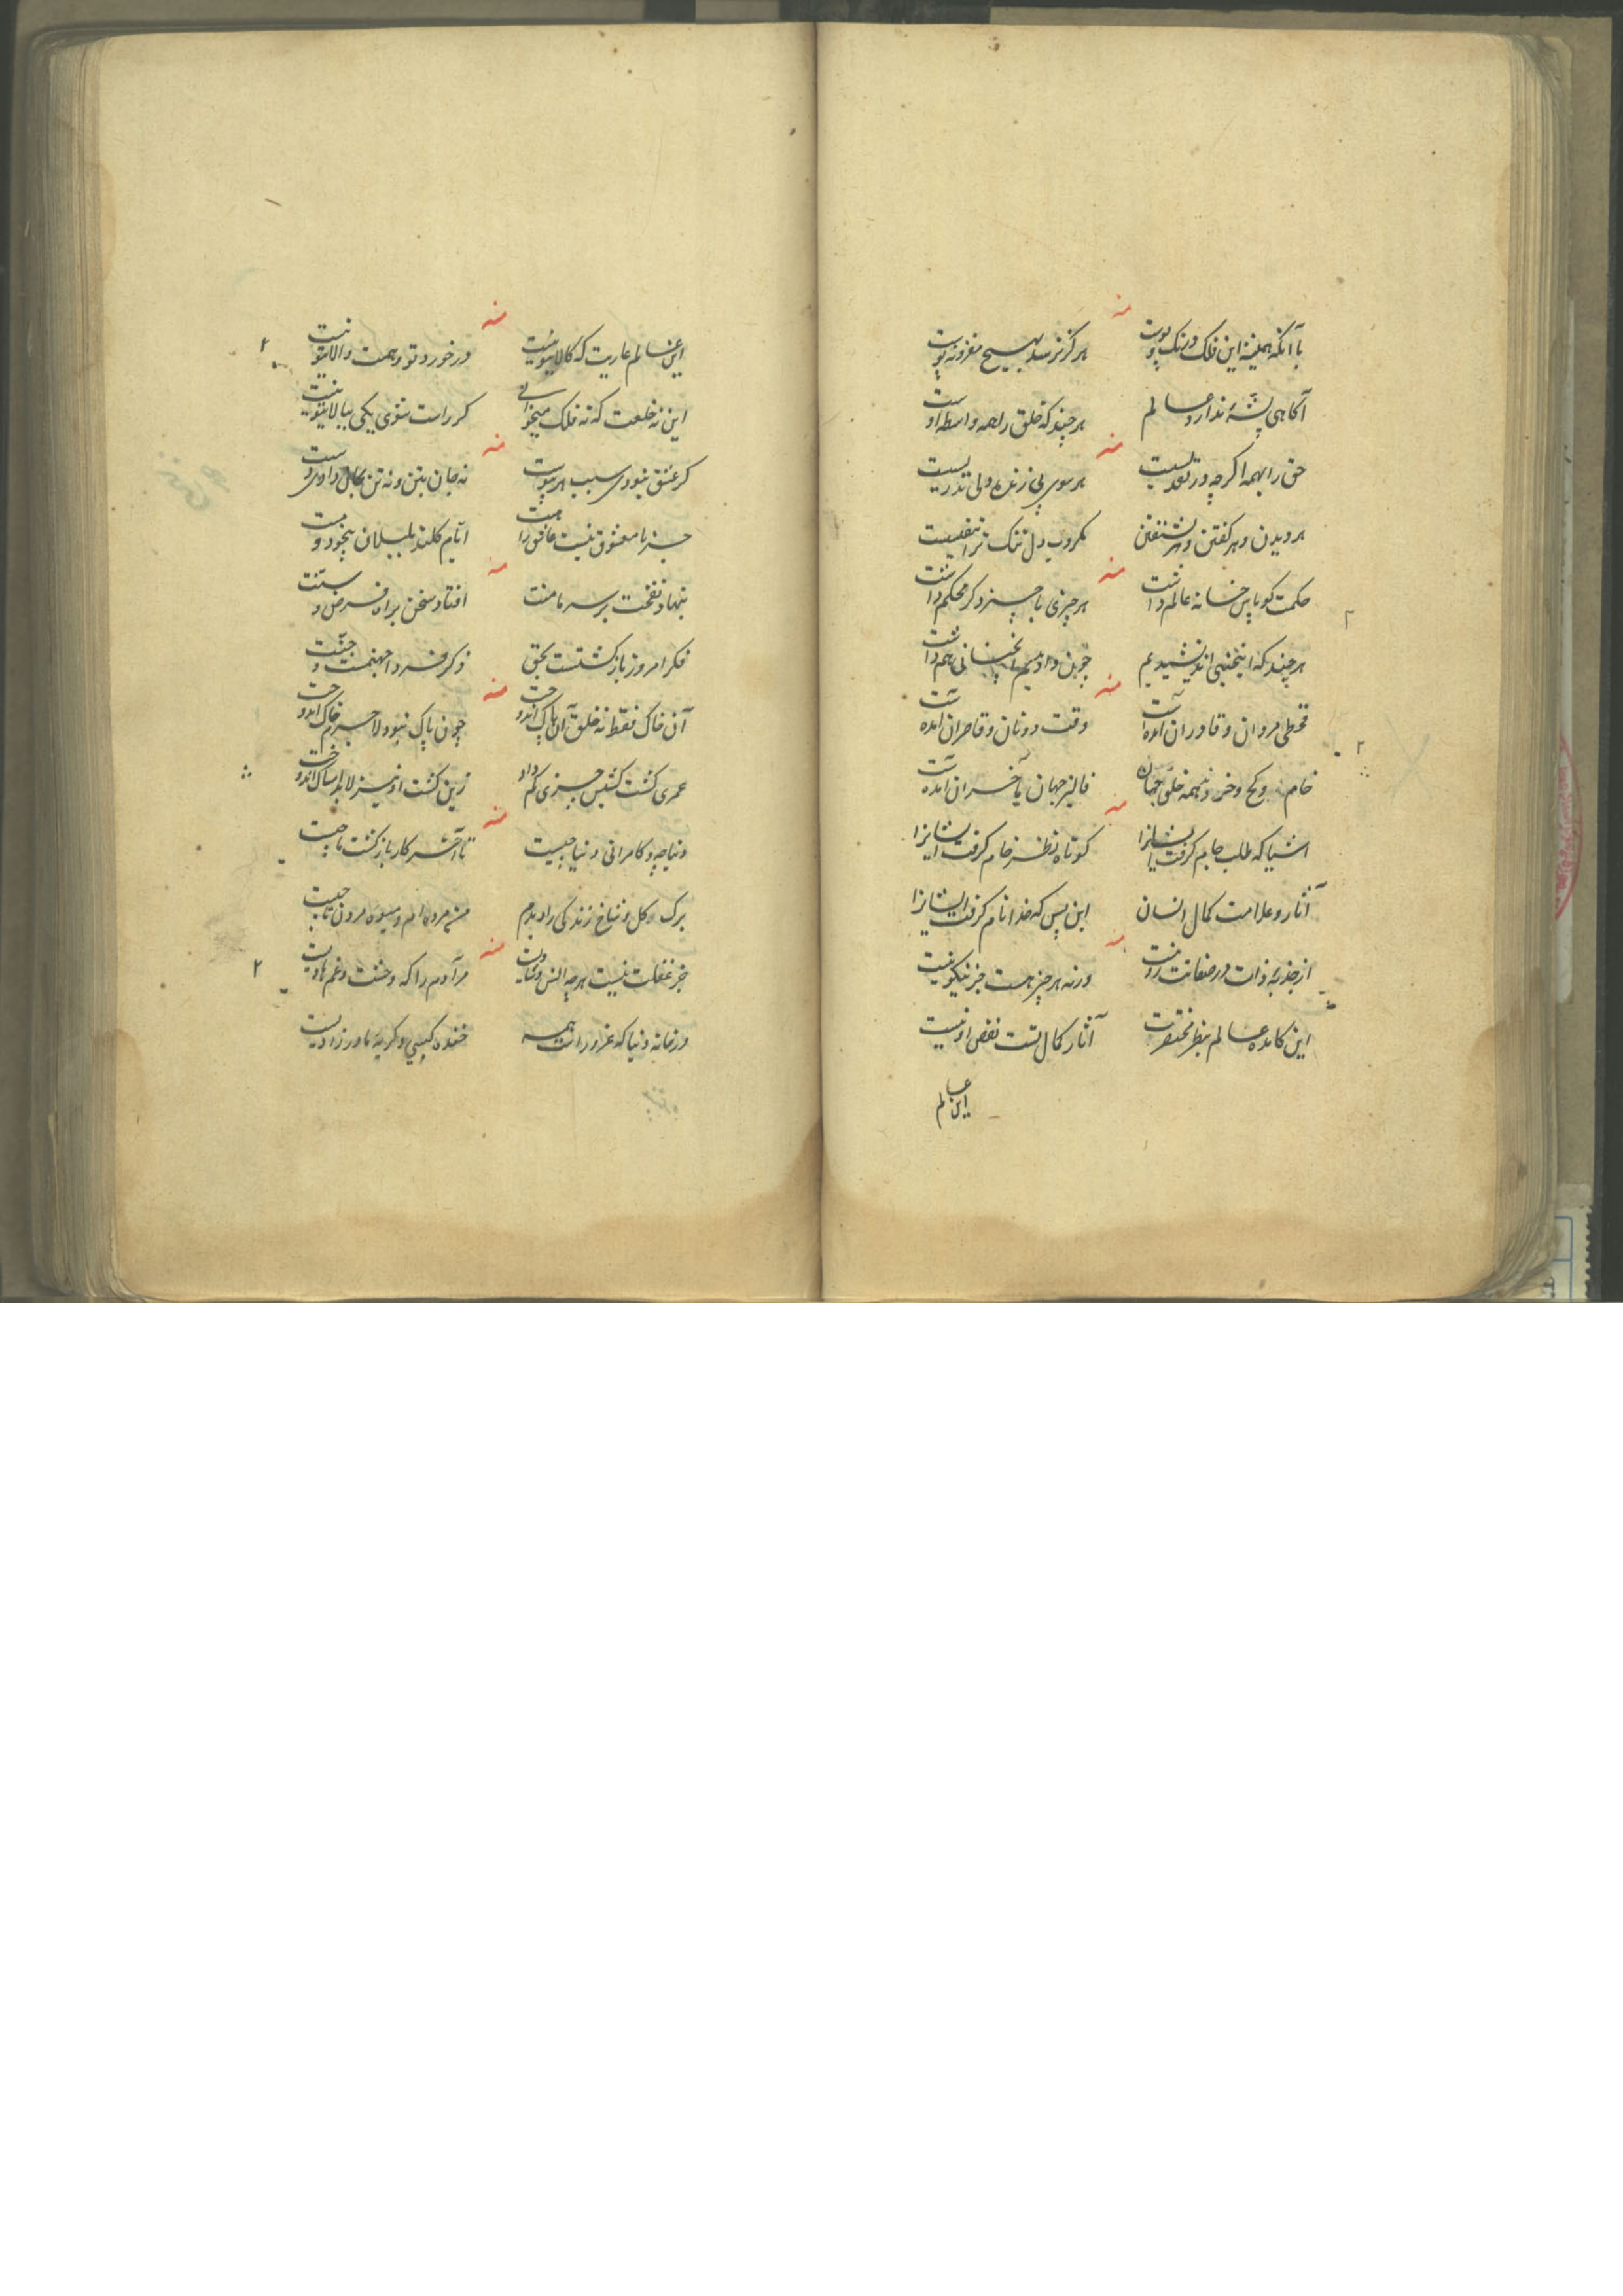 منه
با آنکه همیشه این فلک در تک و پوست هرگز نرسد بهیچ مغز و نه پوست
آگاهی پشه ندارد عالم هرچند که خلق را همه واسطه اوست
منه
حق را بهمه اگرچه در هر سوی پی زنده دلی
هر دیدن و هر گفتن و هر نشنفتن دل تنگ ترا
منه
حکمت کو پاس خانه عالم داشت هر چیزی با چیز دگر محکم داشت
هرچند که اینچنین اندیشیدیم چون وا دیدیم آنچنانی هم داشت
منه
قحطی مردان و قادران آمده است وقت دونان و قاصران آمده است
خام و کج و خر دنهمه خلق جهان فالیز جهان بآخر آن آمده است
منه
اشیا که طلب جام گرفت ایشانرا کوتاه نظر خام گرفت ایشانرا
آثار و علامت کمال انسان این پس که خدا نام گرفت ایشانرا
منه
از جذبه ذات در صفاتت رو نیست ورنه هر چیز هست جز نیکو نیست
این کامده عالم بنظر مختصرت آثار کمال تست نقص او نیست
این عالم
منه
این عالم عاریت که کالای تو نیست در خورد تو و همت والای تو نیست
این نه خلعت که نه فلک میخوانی گر راست شوی یکی ببالای تو نیست
منه
گر عشق نبودی سبب هر پیوست نه جان بتن و نه تن بجان دادی دست
جز با معشوق نیست عاشق را هست ایام گلند بلبلان بیخود و مست
منه
بنهاد نفخت بر سر ما منت افتاد سخن براه فرض و سنت
فکر امروز بازگشتست بحق ذکر فردا جهنمست و جنت
منه
آن خاک فقط نه خلق آن پاک انداخت چون پاک نبود لاجرم خاک انداخت
عمری کشت کشیش چیزی کم داد زین کشت او نیز لابد امساک انداخت
منه
دنیا چه و کامرانی دنیا چیست تا آخر کار بازگشت ما چیست
برگ و گل و شاخ زندگی را دیدم من مرده ام و میوه مردن تا چیست
منه
جز غفلت نیست هرچه انس و شادیست مر آدم را که وحشت و غم هادیست
در خانه دنیا که غرور است همه خنده کسبی و گریه مادرزادیست